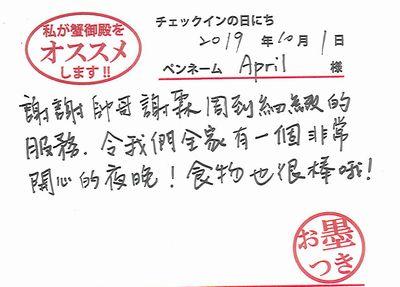 私が蟹御殿を
オススメ
します!!
チェックインの日にち
2019 年 10 月 1 日
ペンネーム April 様
謝謝帥哥謝霖周到細緻的
服務. 令我們全家有一個非常
開心的夜晚! 食物也很棒哦!
お墨
つき